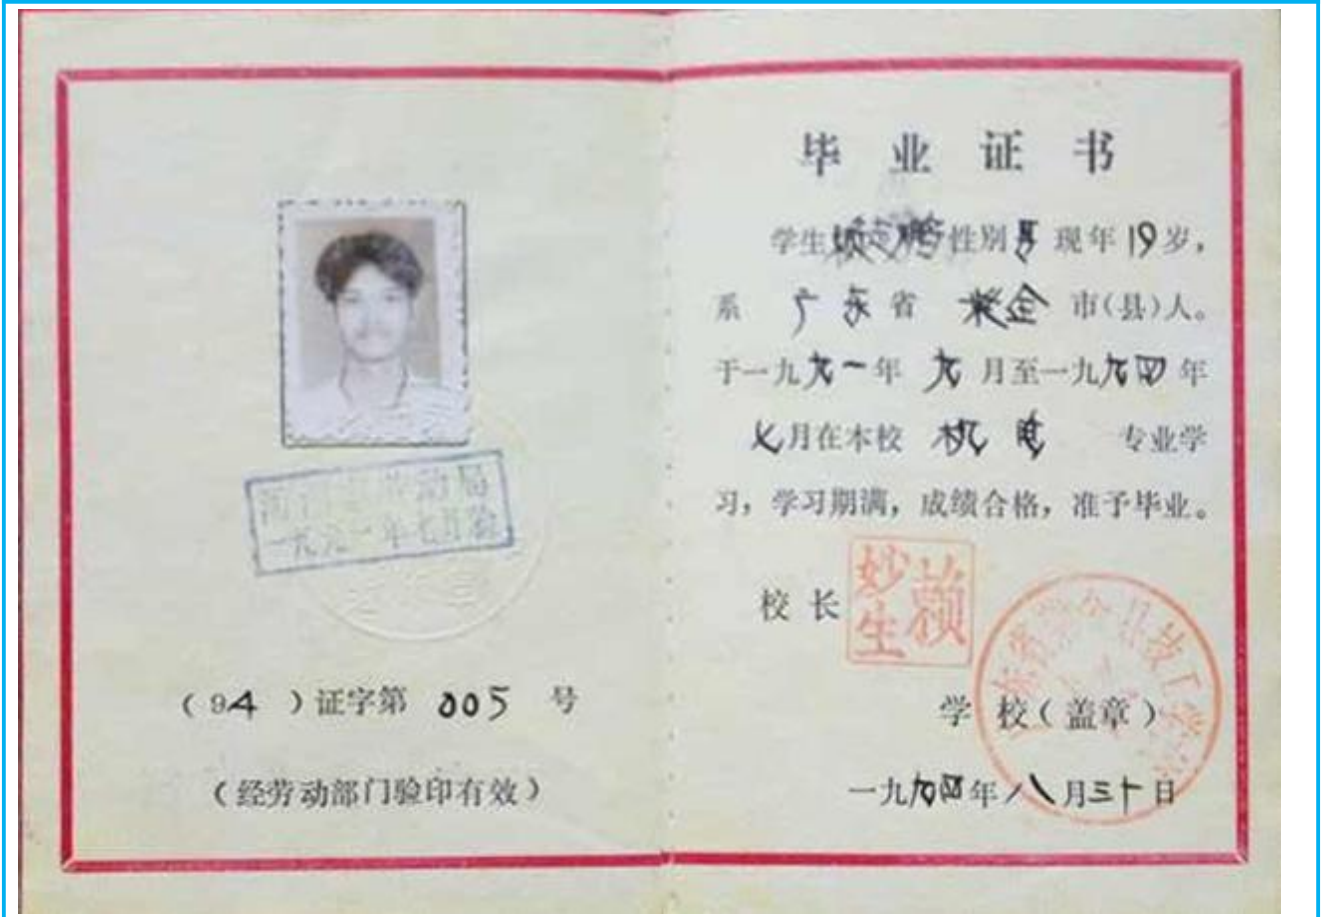 一九九一年七月验
（94）证字第 005 号
（经劳动部门验印有效）
毕业证书
学生 性别男现年19岁，
系 广东省 紫金 市（县）人。
于一九九一年 九 月至一九九四年
七月在本校 机电 专业学
习，学习期满，成绩合格，准予毕业。
校长 赖妙生
广东省紫金县技工学校
学 校（盖章）
一九九四年 八月三十日